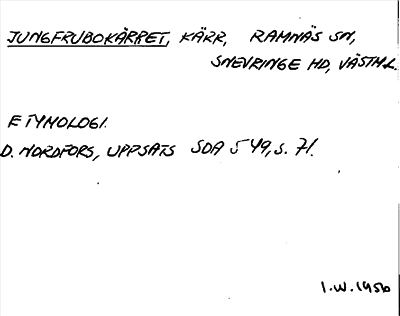 JUNGFRUBOKÄRRET, KÄRR, RAMNÄS SN,
SNEVRINGE HD, VÄSTML.
ETYMOLOGI.
D. NORDFORS, UPPSATS SDA 549, S. 71.
I.W. 1956